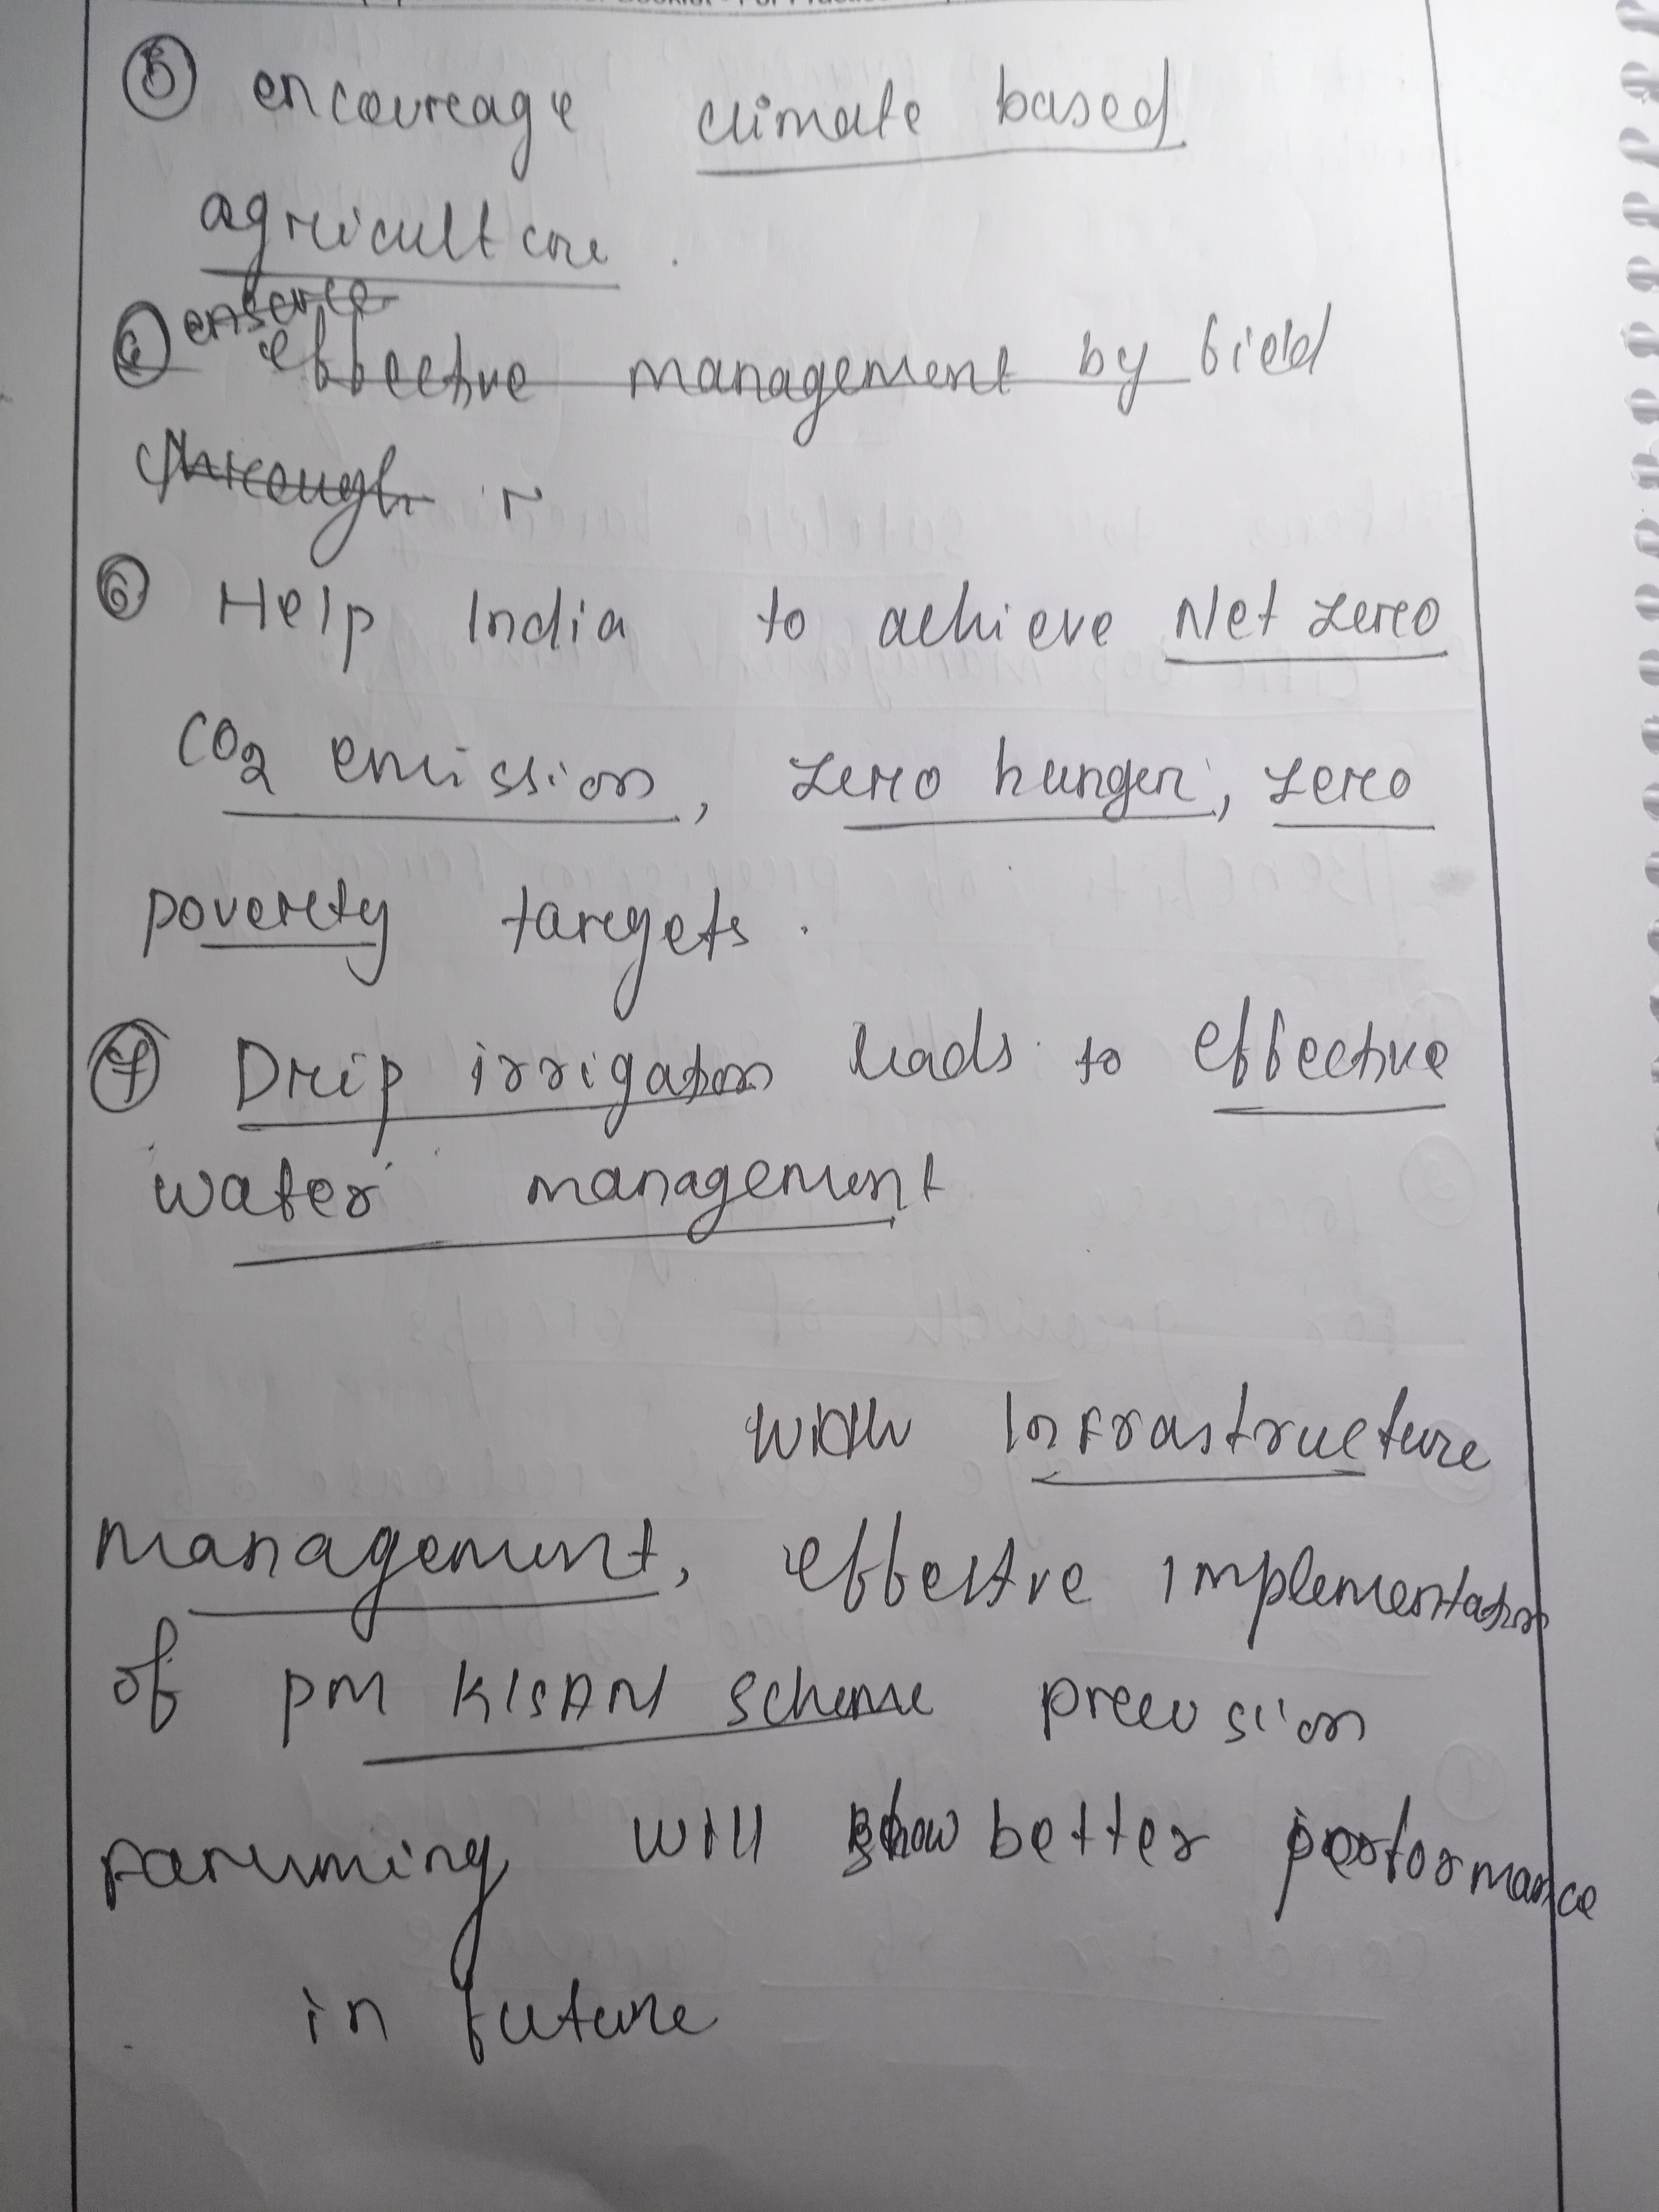 ⑤ encourage climate based
agriculture.
④ ensure
effective management by field
through r
⑥ Help India to achieve Net zero
CO2 emission, zero hunger, zero
poverty targets.
⑦ Drip irrigation leads to effective
water management
with Infrastructure
management, effective implementation
of PM KISAN scheme precision
farming will show better performance
in future